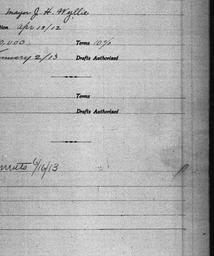 Mayor J. H. Wyllie
tion Apr 12/12
0,000. Terms 10%
nuary 2/13 Drafts Authorized
Terms
Drafts Authorized
4/16/13